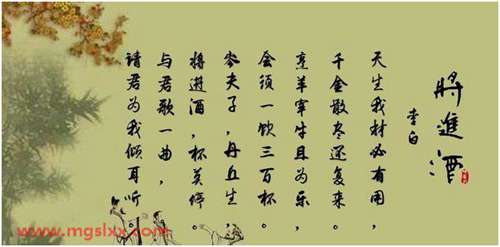 將進酒
李白
天生我材必有用,
千金散尽还复来。
烹羊宰牛且为乐,
会须一饮三百杯。
岑夫子,丹丘生,
将进酒,杯莫停。
与君歌一曲,
请君为我倾耳听。
www.mgslxx.com